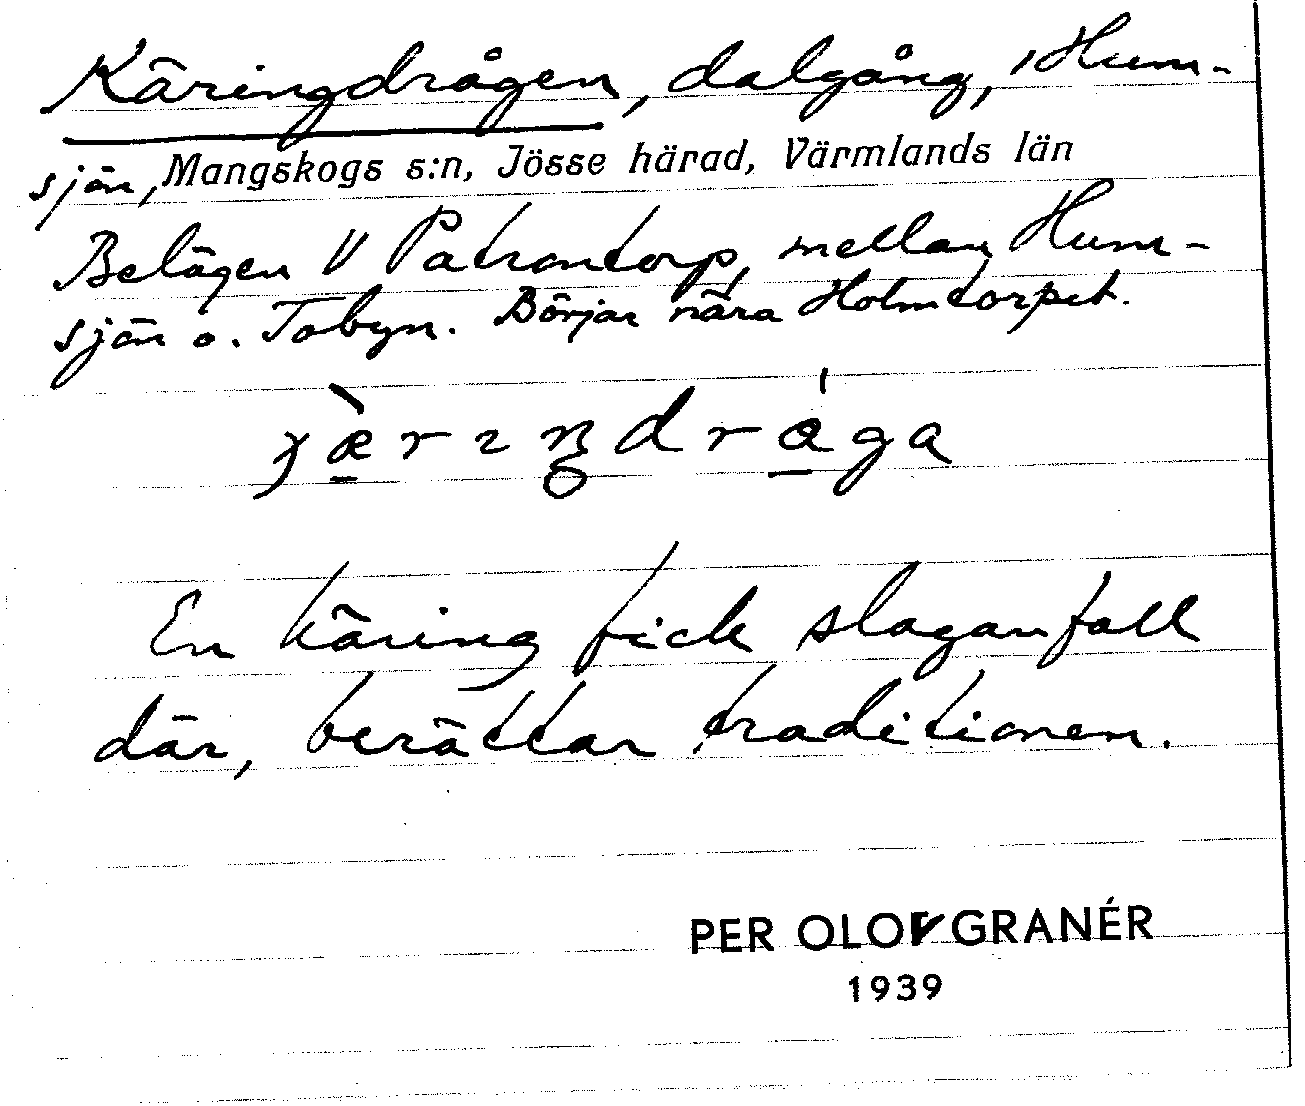 Käringdrågen, dalgång, Hum-
sjön, Mangskogs s:n, Jösse härad, Värmlands län
Belägen V Patrontorp, mellan Hum-
sjön o. Tobyn. Börjar nära Holmtorpet.
En käring fick slaganfall
där, berättar traditionen.
PER OLOV GRANÉR
1939